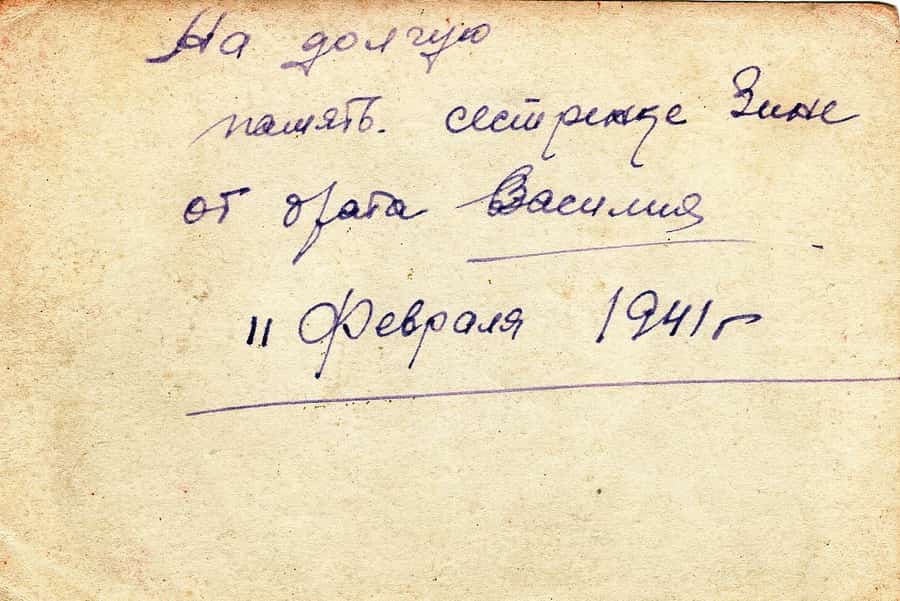 На долгую
память. сестренке Зине
от брата Василия
11 Февраля 1941г